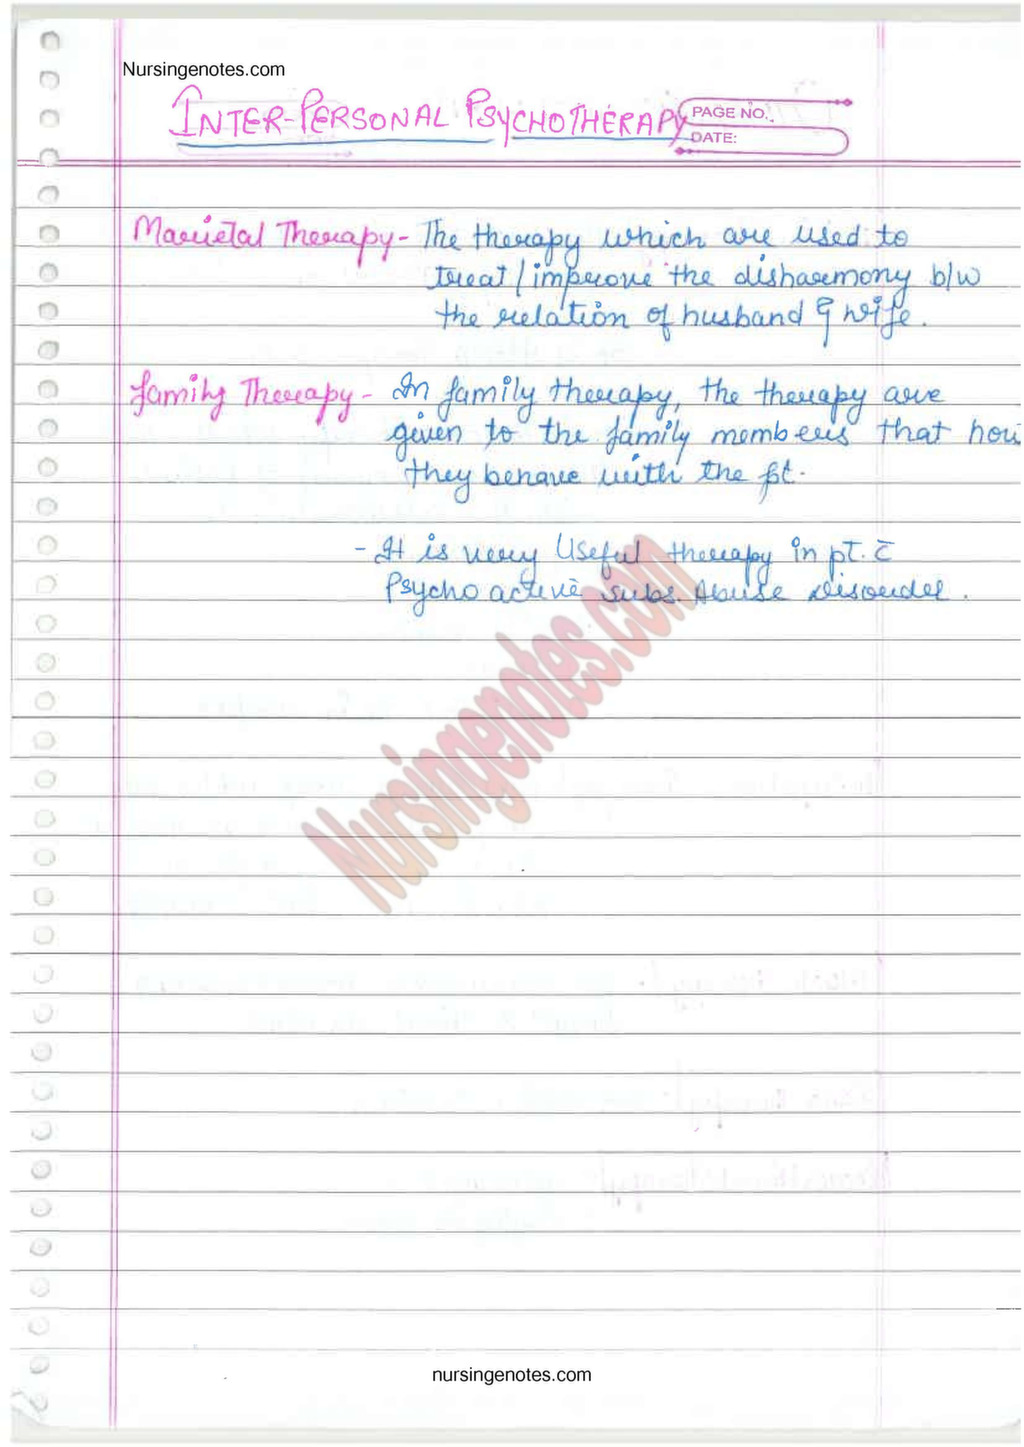 Nursingenotes.com
INTER-PERSONAL PSYCHOTHERAPY
PAGE NO.:
DATE:
Marietal Therapy - The therapy which are used to
treat / improve the disharmony b/w
the relation of husband & wife.
family Therapy - In family therapy, the therapy are
given to the family members that how
they behave with the pt.
- It is very Useful therapy in pt. c̄
Psycho active subs. Abuse disorder.
Nursingenotes.com
nursingenotes.com